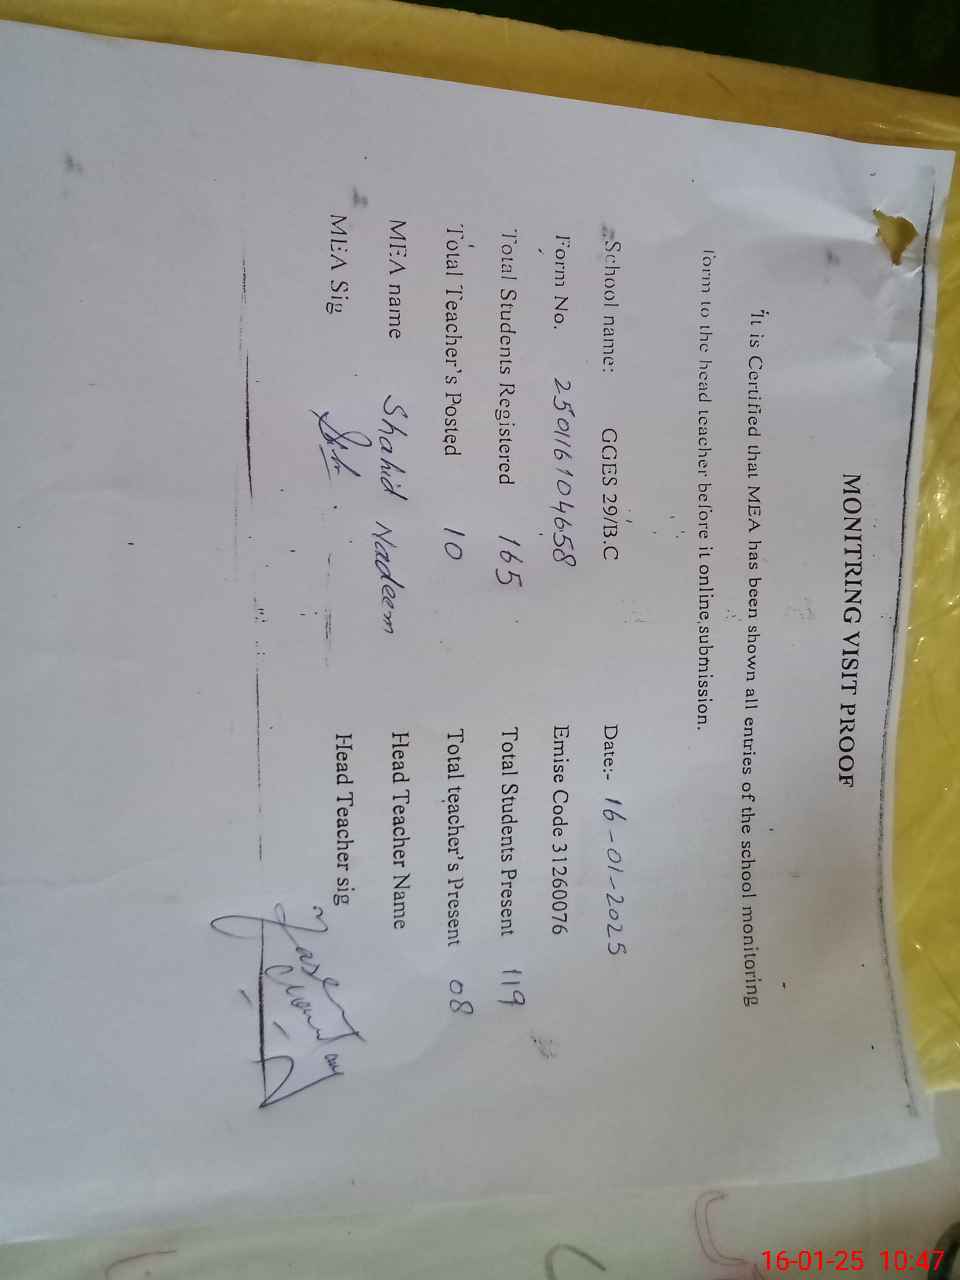 MONITRING VISIT PROOF
It is Certified that MEA has been shown all entries of the school monitoring
form to the head teacher before it online submission.
School name: GGES 29/B.C Date:- 16-01-2025
Form No. 250116104658 Emise Code 31260076
Total Students Registered 165 Total Students Present 119
Total Teacher's Posted 10 Total teacher's Present 08
MEA name Shahid Nadeem Head Teacher Name
MEA Sig Head Teacher sig
16-01-25 10:47